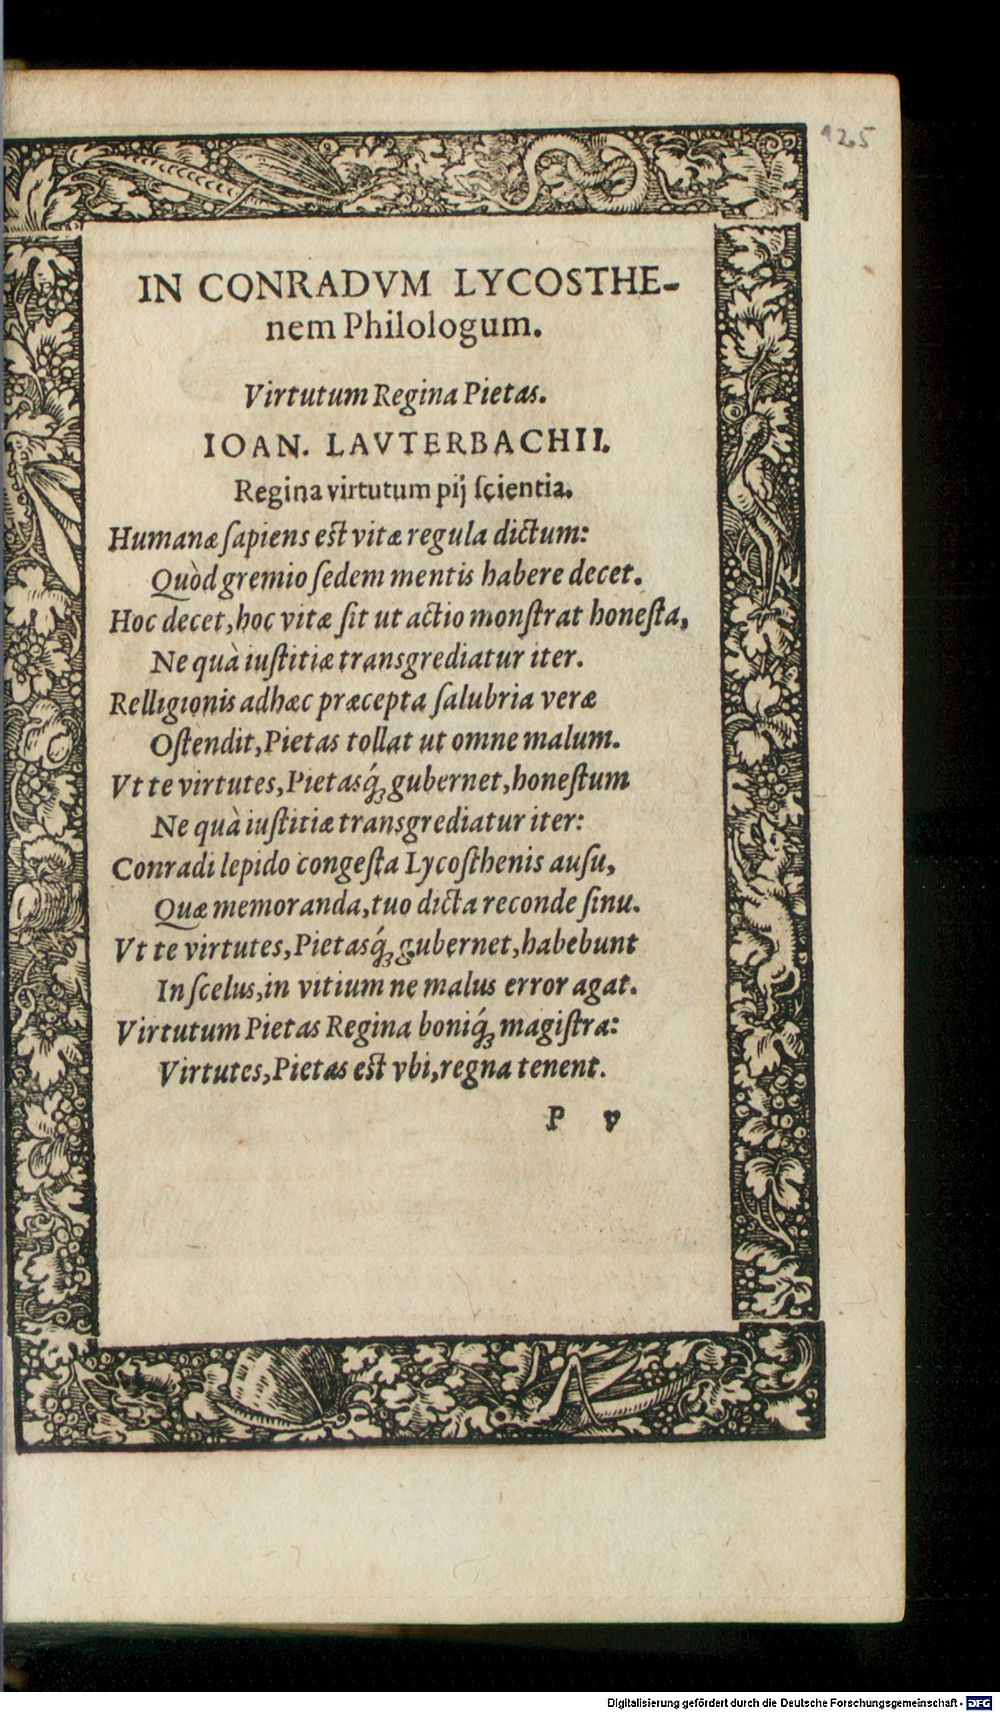 125
IN CONRADVM LYCOSTHE-
nem Philologum.
Virtutum Regina Pietas.
IOAN. LAVTERBACHII.
Regina virtutum pij ſcientia.
Humanæ ſapiens est vitæ regula dictum:
Quòd gremio ſedem mentis habere decet.
Hoc decet, hoc vitæ ſit ut actio monſtrat honeſta,
Ne quà iuſtitiæ transgrediatur iter.
Relligionis adhæc præcepta ſalubria veræ
Oſtendit, Pietas tollat ut omne malum.
Vt te virtutes, Pietasq́; gubernet, honeſtum
Ne quà iuſtitiæ transgrediatur iter:
Conradi lepido congeſta Lycoſthenis auſu,
Quæ memoranda, tuo dicta reconde ſinu.
Vt te virtutes, Pietasq́; gubernet, habebunt
In ſcelus, in vitium ne malus error agat.
Virtutum Pietas Regina boniq́; magiſtra:
Virtutes, Pietas est vbi, regna tenent.
P v
Digitalisierung gefördert durch die Deutsche Forschungsgemeinschaft - DFG